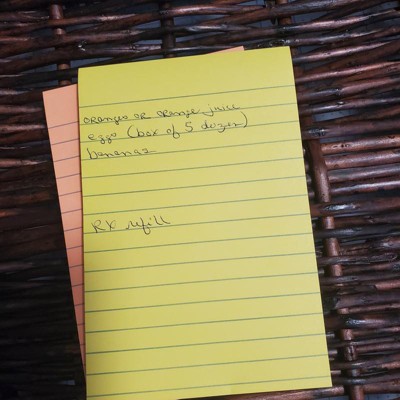 oranges or orange juice
eggs (box of 5 dozen)
bananas
RX refill